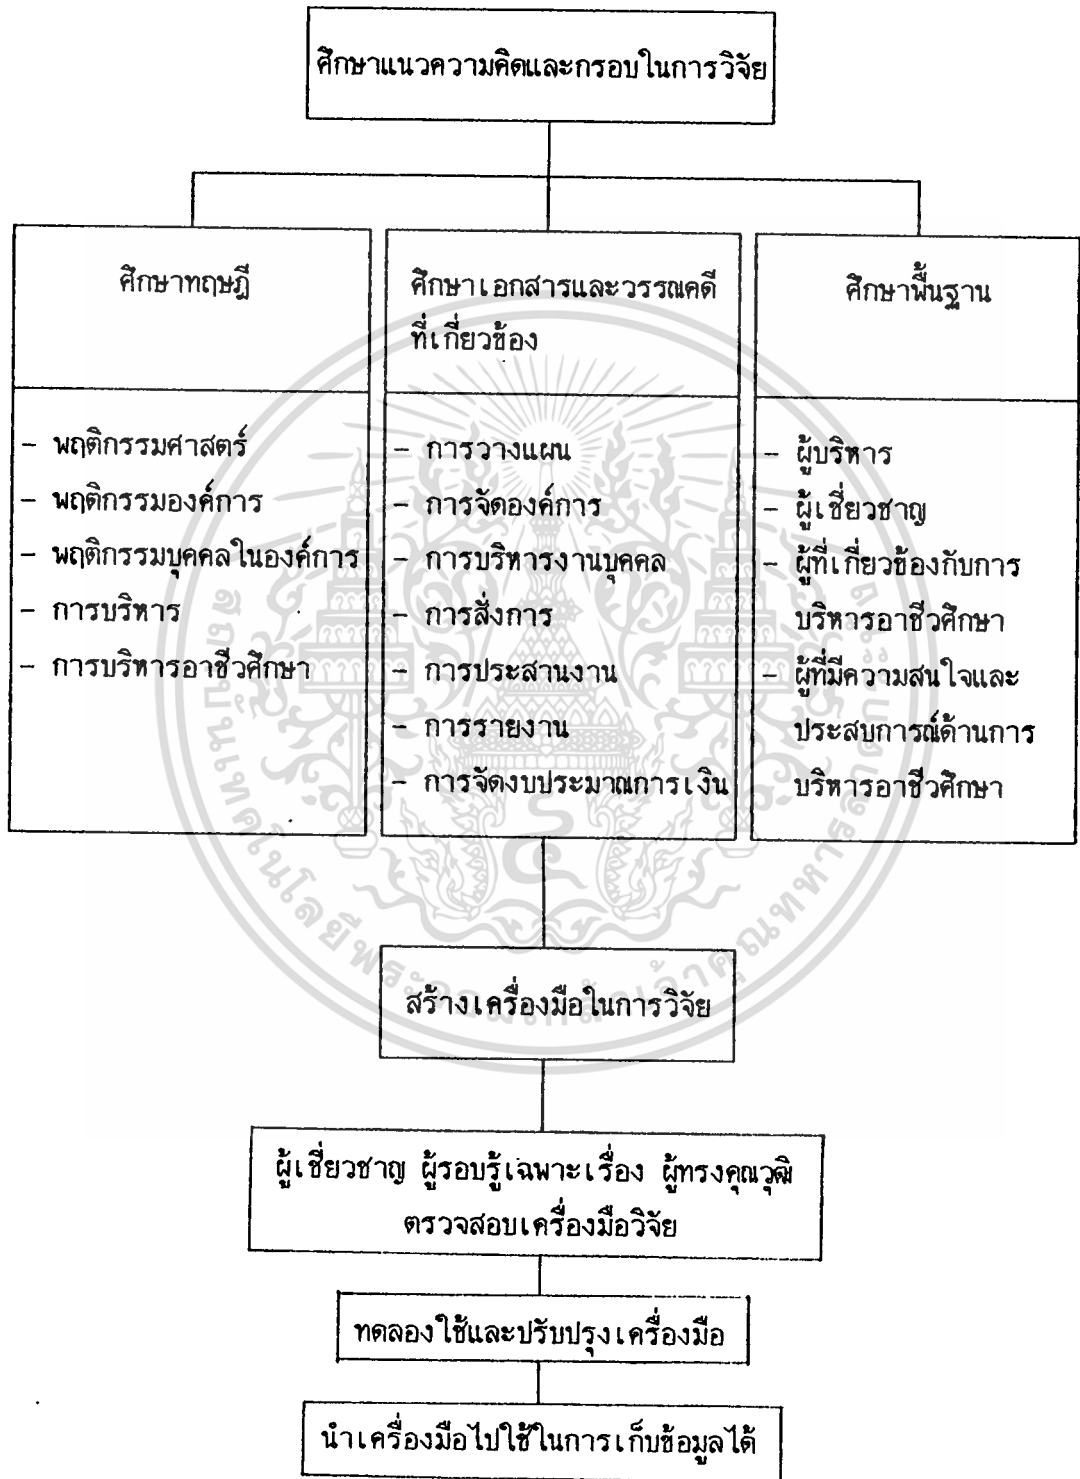 ศึกษาแนวความคิดและกรอบในการวิจัย
ศึกษาทฤษฎี
- พฤติกรรมศาสตร์
- พฤติกรรมองค์การ
- พฤติกรรมบุคคลในองค์การ
- การบริหาร
- การบริหารอาชีวศึกษา
ศึกษาเอกสารและวรรณคดี
ที่เกี่ยวข้อง
- การวางแผน
- การจัดองค์การ
- การบริหารงานบุคคล
- การสั่งการ
- การประสานงาน
- การรายงาน
- การจัดงบประมาณการเงิน
ศึกษาพื้นฐาน
- ผู้บริหาร
- ผู้เชี่ยวชาญ
- ผู้ที่เกี่ยวข้องกับการ
บริหารอาชีวศึกษา
- ผู้ที่มีความสนใจและ
ประสบการณ์ด้านการ
บริหารอาชีวศึกษา
สร้างเครื่องมือในการวิจัย
ผู้เชี่ยวชาญ ผู้รอบรู้เฉพาะเรื่อง ผู้ทรงคุณวุฒิ
ตรวจสอบเครื่องมือวิจัย
ทดลองใช้และปรับปรุงเครื่องมือ
นำเครื่องมือไปใช้ในการเก็บข้อมูลได้